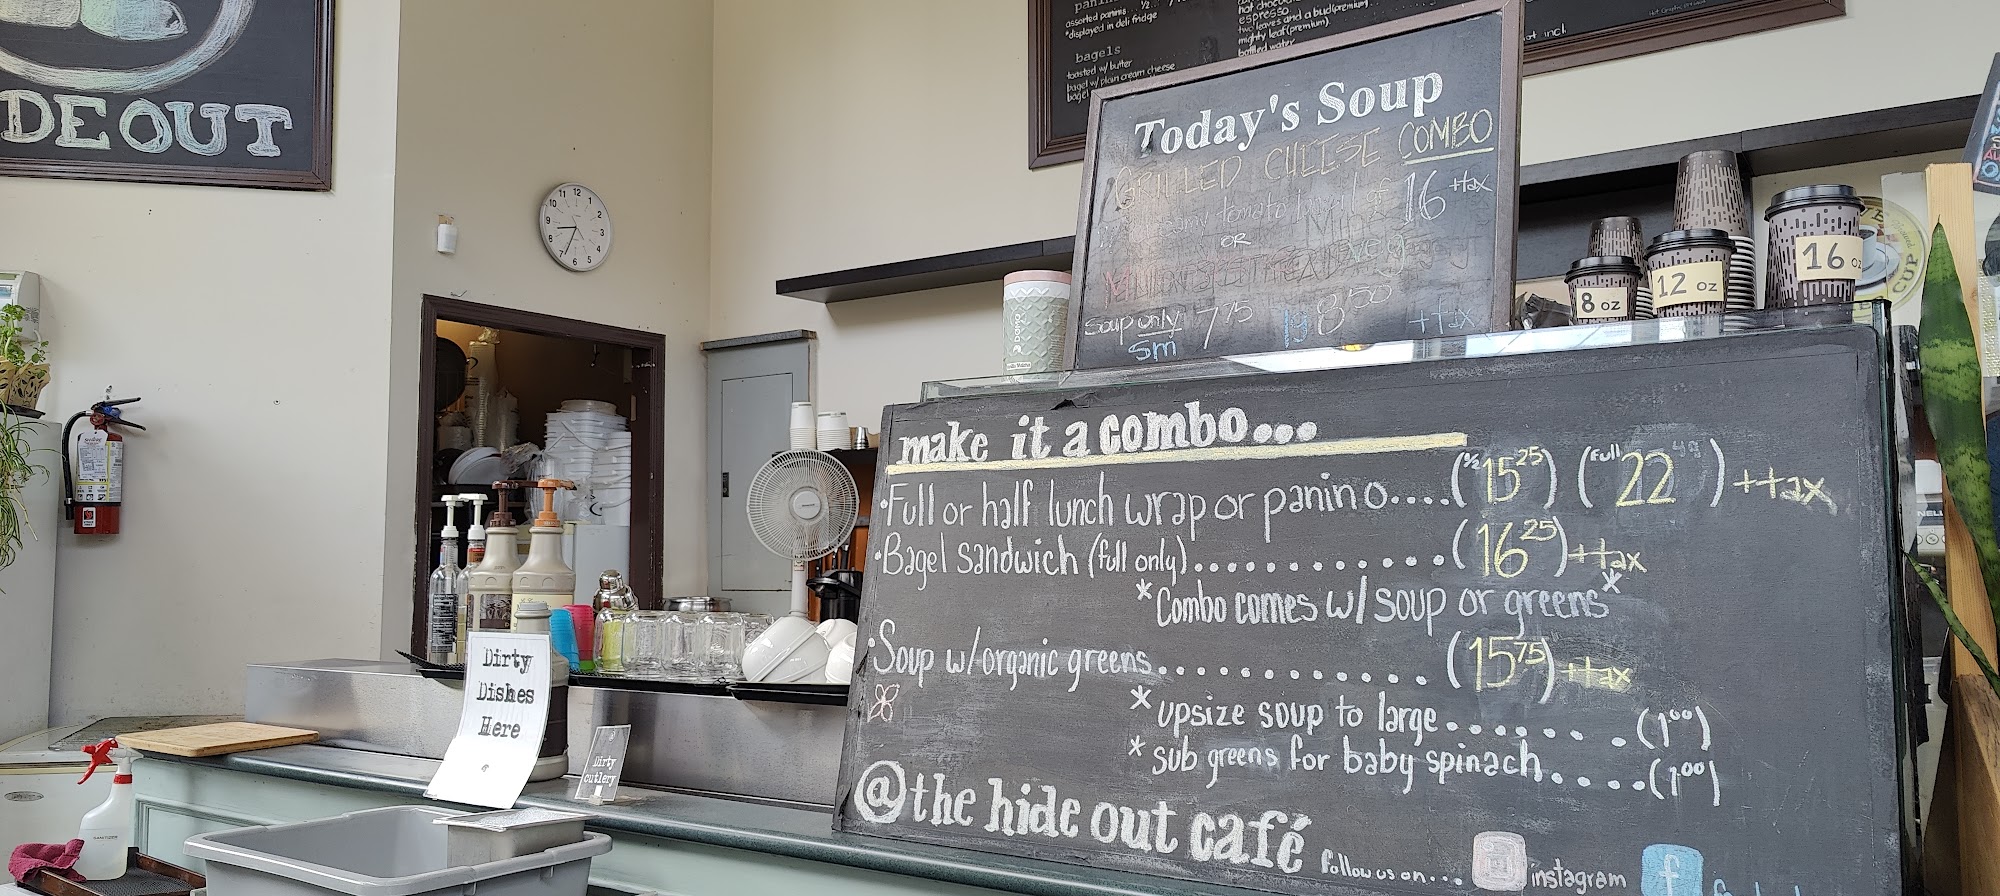 DEOUT
assorted paninis
*displayed in deli fridge
bagels
toasted w/ butter
bagel w/ plain cream cheese
bagel
espresso
two leaves and a bud (premium)
mighty leaf (premium)
bottled water
Today's Soup
GRILLED CHEESE COMBO
tomato 16 +tax
OR
Soup only 7.75 lg 8.50 + tax
sm
8 oz
12 oz
16 oz
11 12 1 2 3 4 5 6 7 8 9 10
make it a combo...
•Full or half lunch wrap or panino....(½ 15.25) (full 22) + tax
•Bagel sandwich (full only)............(16.25) + tax
*Combo comes w/ soup or greens*
•Soup w/ organic greens............(15.75) + tax
*upsize soup to large.......(1.00)
*sub greens for baby spinach.....(1.00)
@the hide out café
follow us on...
instagram
f
Dirty
Dishes
Here
Dirty
cutlery
SANITIZER